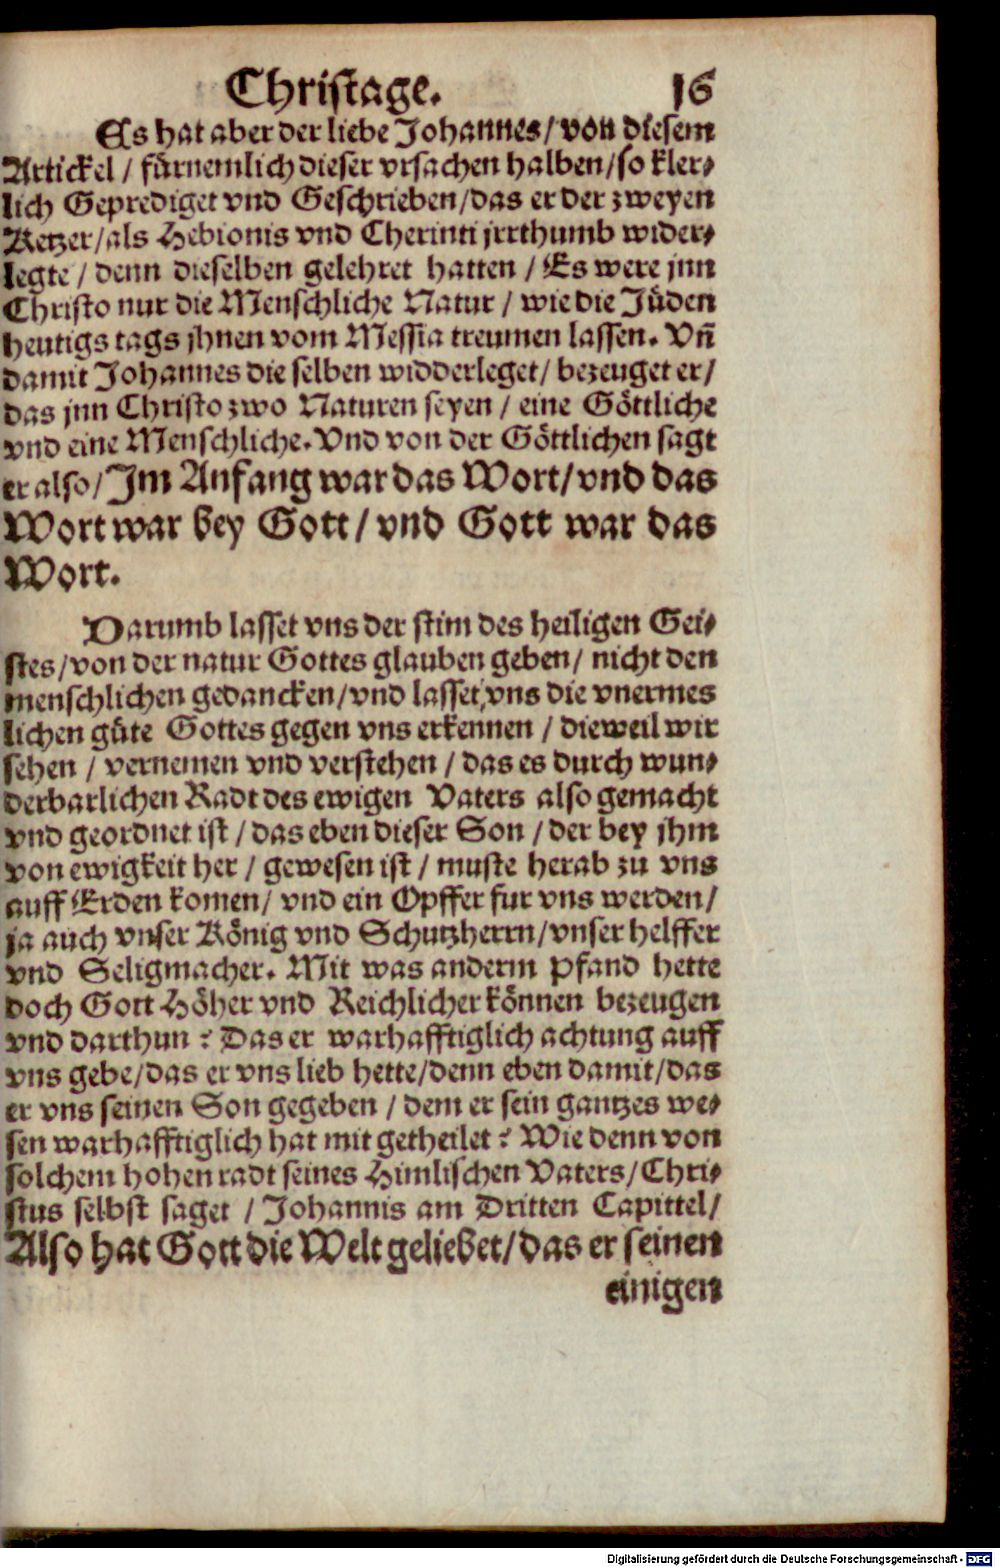 Christage. 16
Es hat aber der liebe Johannes/ von diesem
Artickel / fürnemlich dieser vrsachen halben/so kler-
lich Geprediget vnd Geschrieben/das er der zweyen
Ketzer/als Hebionis vnd Cherinti jrrthumb wider-
legte / denn dieselben gelehret hatten / Es were jnn
Christo nur die Menschliche Natur / wie die Jüden
heutigs tags jhnen vom Messia treumen lassen. Vñ
damit Johannes die selben widderleget/ bezeuget er/
das jnn Christo zwo Naturen seyen / eine Göttliche
vnd eine Menschliche. Vnd von der Göttlichen sagt
er also/ Im Anfang war das Wort/vnd das
Wort war bey Gott / vnd Gott war das
Wort.
Darumb lasset vns der stim des heiligen Gei-
stes/von der natur Gottes glauben geben/ nicht den
menschlichen gedancken/vnd lasset vns die vnermes
lichen güte Gottes gegen vns erkennen / dieweil wir
sehen / vernemen vnd verstehen / das es durch wun-
derbarlichen Radt des ewigen Vaters also gemacht
vnd geordnet ist / das eben dieser Son / der bey jhm
von ewigkeit her / gewesen ist / muste herab zu vns
auff Erden komen/ vnd ein Opffer fur vns werden/
ja auch vnser König vnd Schutzherrn/vnser helffer
vnd Seligmacher. Mit was anderm Pfand hette
doch Gott Höher vnd Reichlicher können bezeugen
vnd darthun ? Das er warhafftiglich achtung auff
vns gebe/das er vns lieb hette/denn eben damit/das
er vns seinen Son gegeben / dem er sein gantzes we-
sen warhafftiglich hat mit getheilet ? Wie denn von
solchem hohen radt seines Himlischen Vaters/Chri-
stus selbst saget / Johannis am Dritten Capittel/
Also hat Gott die Welt geliebet/das er seinen
einigen
Digitalisierung gefördert durch die Deutsche Forschungsgemeinschaft - DFG